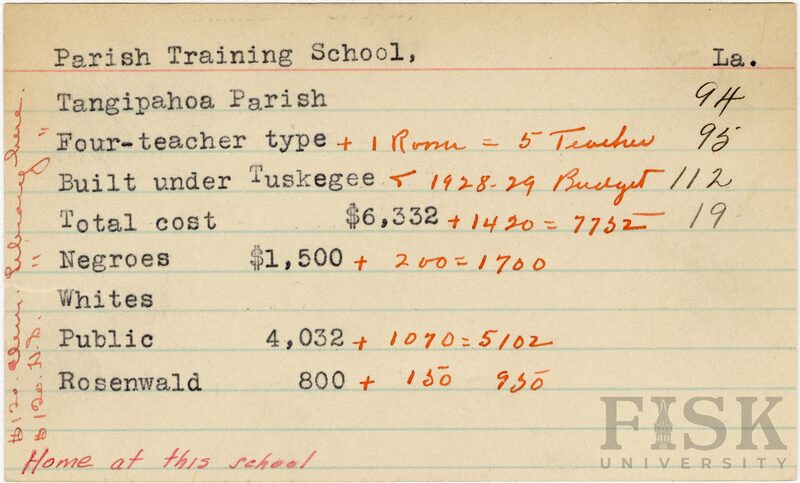 Parish Training School, La.
Tangipahoa Parish 94
Four-teacher type + 1 Room = 5 Teacher 95
Built under Tuskegee & 1928-29 Budget 112
Total cost $6,332 + 1420 = 7752 19
Negroes $1,500 + 200 = 1700
Whites
Public 4,032 + 1070 = 5102
Rosenwald 800 + 150 950
Home at this school
$120. Elem. Library here.
$120. H.S. " "
FISK
UNIVERSITY